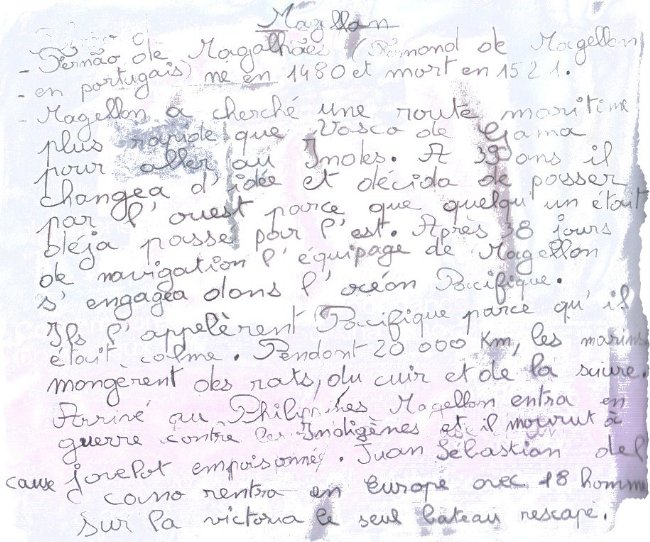 Magellan
- Fernão de Magalhães (Fernand de Magellan
- en portugais) né en 1480 et mort en 1521.
- Magellan a cherché une route maritime
plus rapide que Vasco de Gama
pour aller au Indes. A 39 ans il
changea d'idée et décida de passer
par l'ouest parce que quelqu'un était
déja passé par l'est. Après 38 jours
de navigation l'équipage de Magellan
s'engagea dans l'océan Pacifique.
Ils l'appelèrent Pacifique parce qu'il
était calme. Pendant 20 000 km, les marins
mangèrent des rats, du cuir et de la sciure.
Arrivé au Philippines Magellan entra en
guerre contre les Indigènes et il mourut à
cause javelot empoisonné. Juan Sébastian del
cano rentra en Europe avec 18 homme
sur la victoria le seul bateau rescapé.